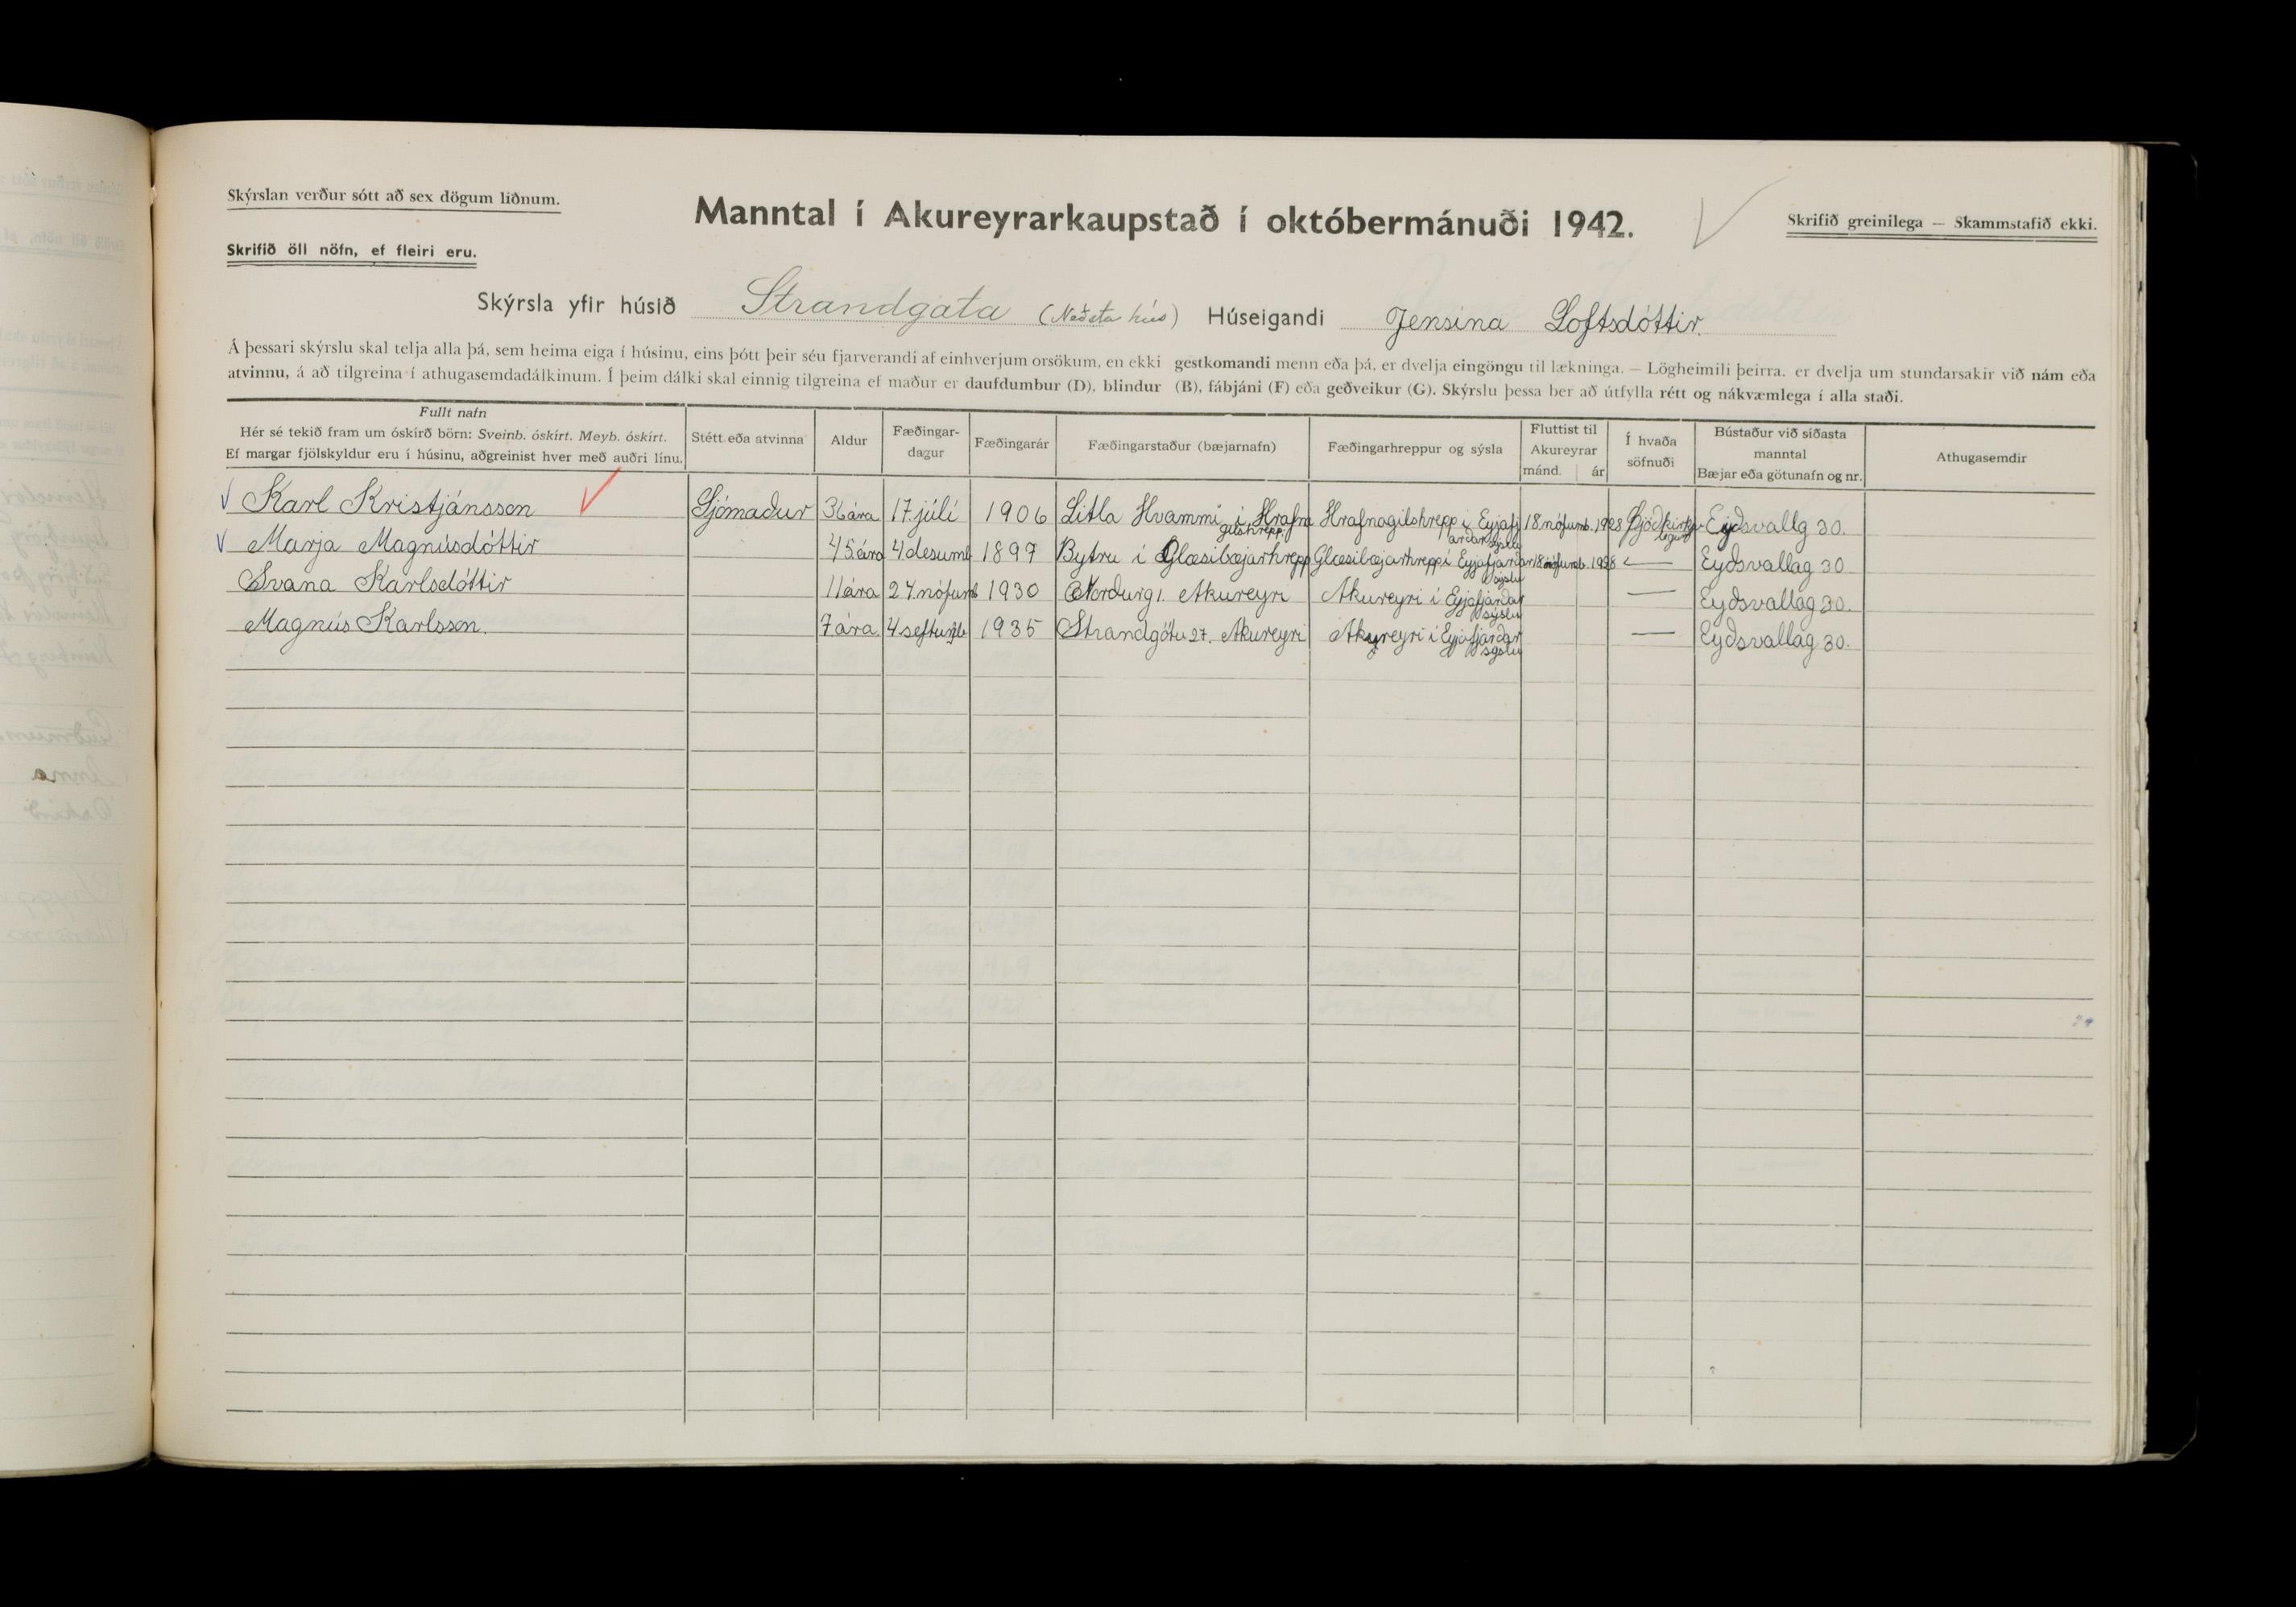 Skýrslan verður sótt að sex dögum liðnum.
Skrifið öll nöfn, ef fleiri eru.
Manntal í Akureyrarkaupstað í októbermánuði 1942.
Skrifið greinilega — Skammstafið ekki.
Skýrsla yfir húsið Strandgata (Neðsta hús) Húseigandi Jensína Loftsdóttir.
Á þessari skýrslu skal telja alla þá, sem heima eiga í húsinu, eins þótt þeir séu fjarverandi af einhverjum orsökum, en ekki gestkomandi menn eða þá, er dvelja eingöngu til lækninga. — Lögheimili þeirra, er dvelja um stundarsakir við nám eða
atvinnu, á að tilgreina í athugasemdadálkinum. Í þeim dálki skal einnig tilgreina ef maður er daufdumbur (D), blindur (B), fábjáni (F) eða geðveikur (G). Skýrslu þessa ber að útfylla rétt og nákvæmlega í alla staði.
Fullt nafn
Hér sé tekið fram um óskírð börn: Sveinb. óskírt. Meyb. óskírt.
Ef margar fjölskyldur eru í húsinu, aðgreinist hver með auðri línu.
Stétt eða atvinna
Aldur
Fæðingar-
dagur
Fæðingarár
Fæðingarstaður (bæjarnafn)
Fæðingarhreppur og sýsla
Fluttist til
Akureyrar
mánd. ár
Í hvaða
söfnuði
Bústaður við síðasta
manntal
Bæjar eða götunafn og nr.
Athugasemdir
Karl Kristjánsson Sjómaður 36 ára 17. júlí 1906 Litla Hvammi í Hrafna gilshrepp. Hrafnagilshrepp í Eyjafj arðarsýslu 18 nófumb. 1928 Þjóðkirkju Eyðsvallg 30.
Marja Magnúsdóttir 45 ára 4 desumb 1897 Bytru í Glæsibæjarhrepp Glæsibæjarhreppi Eyjafjarðar sýslu 18 nófumb. 1928 — Eyðsvallag 30
Svana Karlsdóttir 11 ára 27. nófumb 1930 Norðurg 1. Akureyri Akureyri í Eyjafjarðar sýslu — Eyðsvallag 30.
Magnús Karlsson. 7 ára. 4 seftumb 1935 Strandgötu 27. Akureyri Akureyri í Eyjafjarðar sýslu — Eyðsvallag 30.